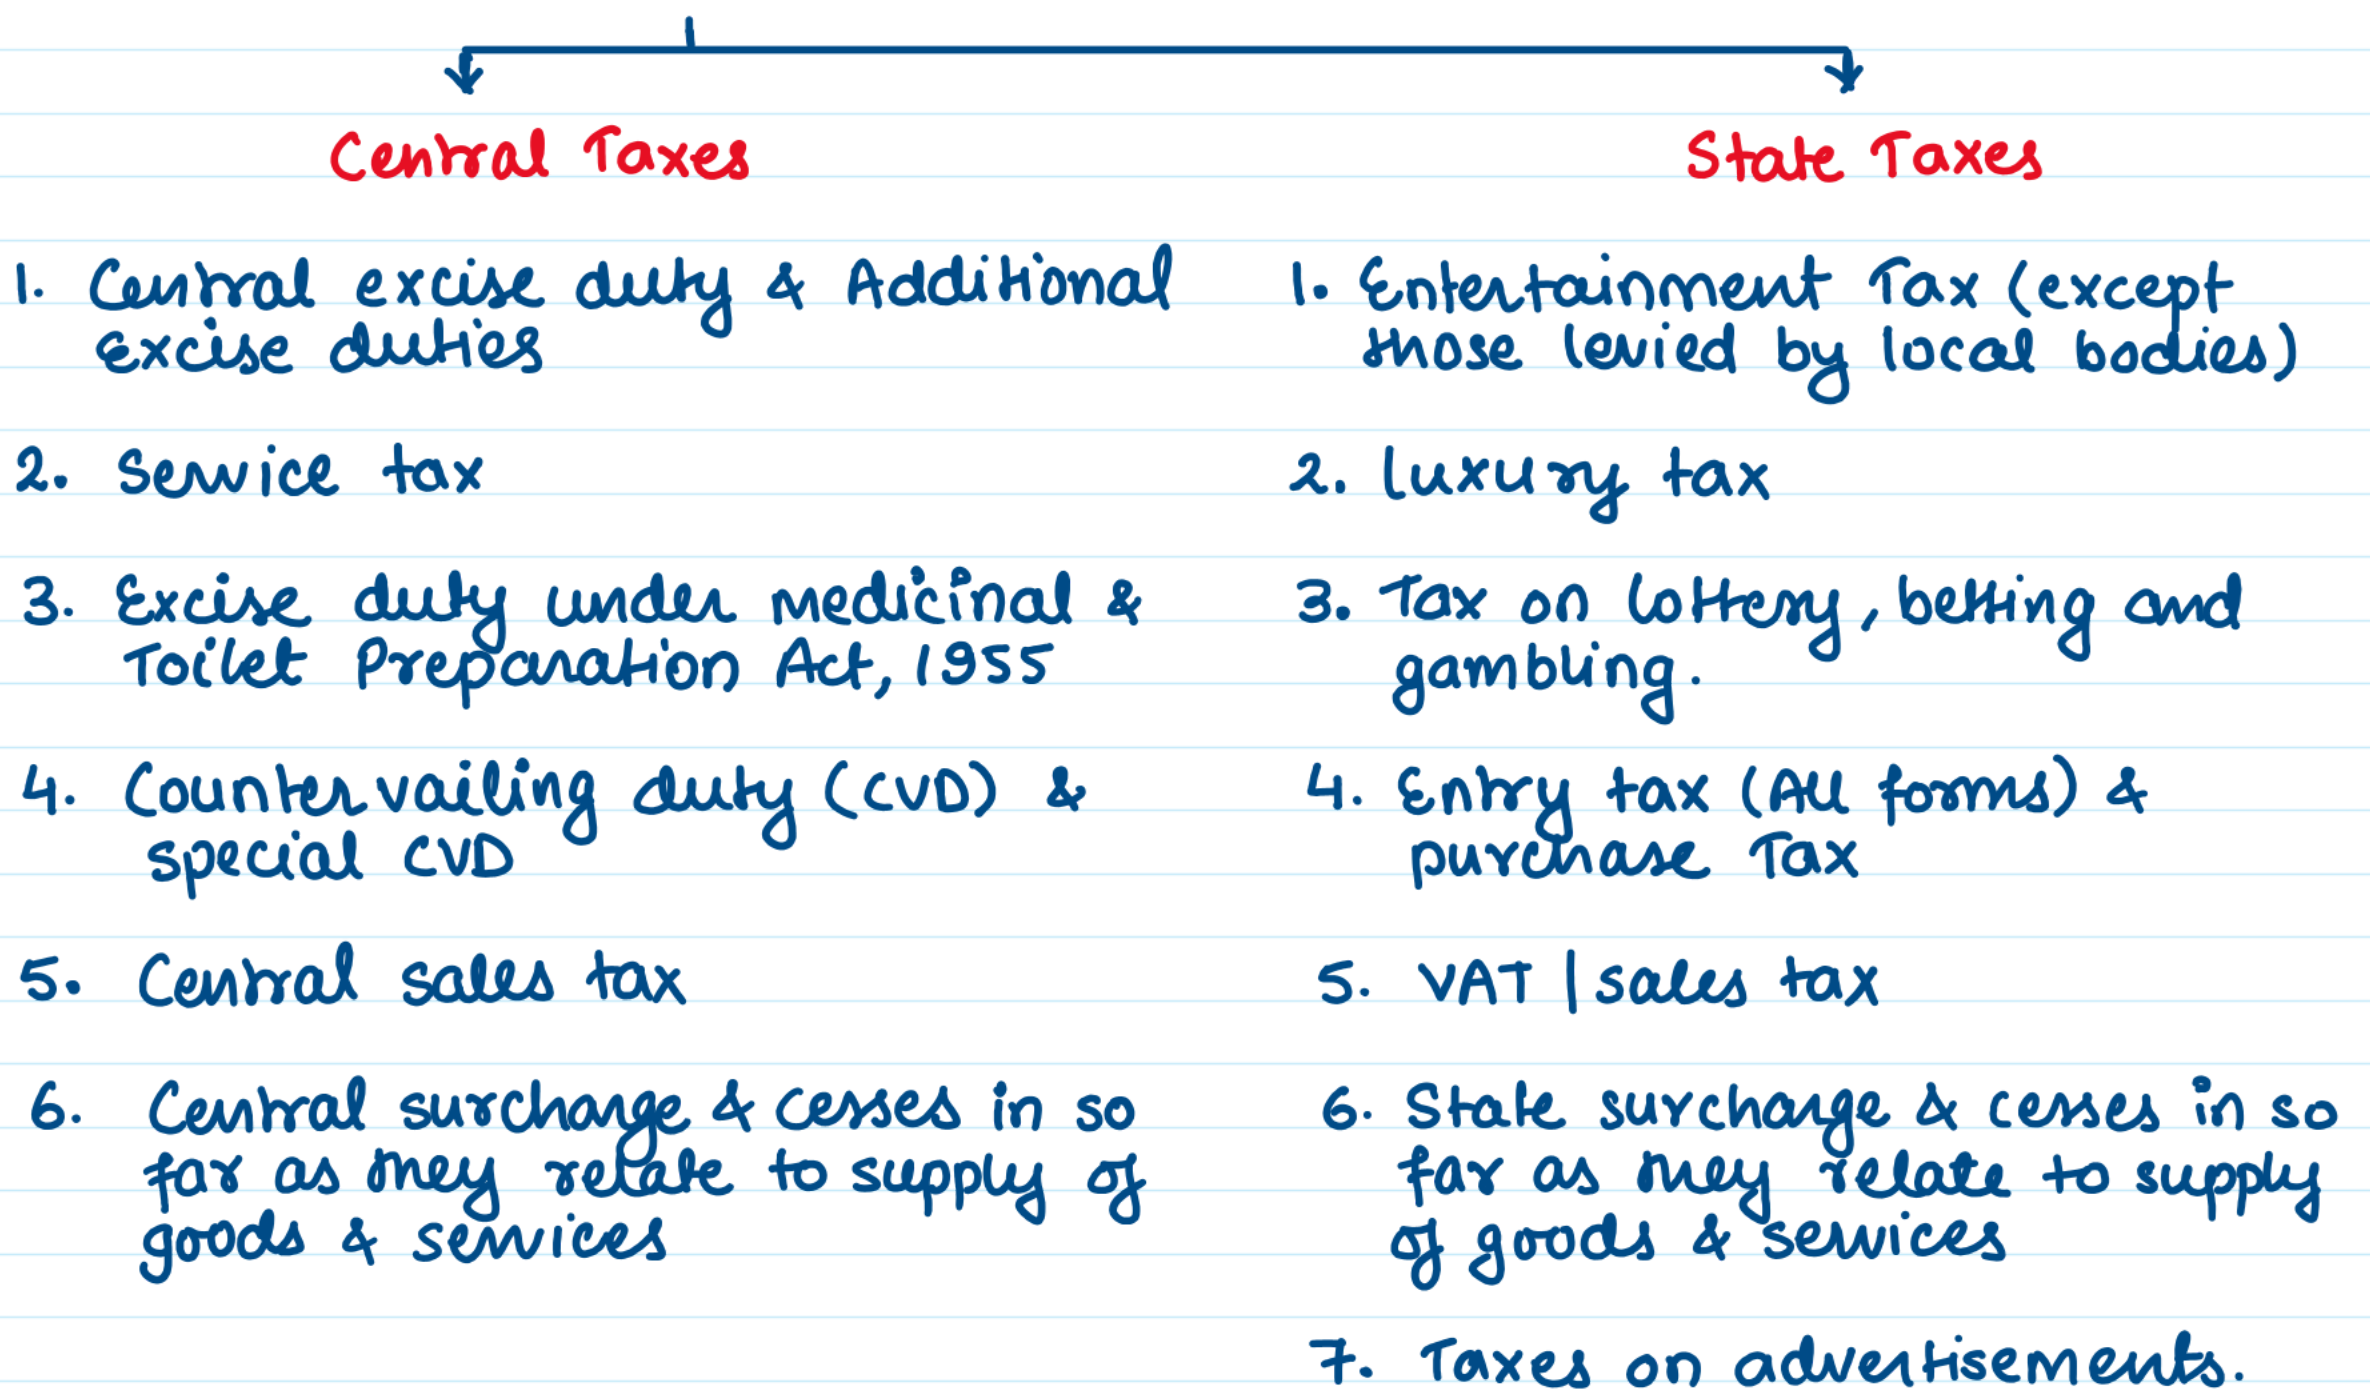 Central Taxes
1. Central excise duty & Additional
Excise duties
2. Service tax
3. Excise duty under Medicinal &
Toilet Preparation Act, 1955
4. Countervailing duty (CVD) &
special CVD
5. Central sales tax
6. Central surcharge & cesses in so
far as they relate to supply of
goods & services
State Taxes
1. Entertainment Tax (except
those levied by local bodies)
2. luxury tax
3. Tax on lottery, betting and
gambling.
4. Entry tax (All forms) &
purchase Tax
5. VAT | sales tax
6. State surcharge & cesses in so
far as they relate to supply
of goods & services
7. Taxes on advertisements.